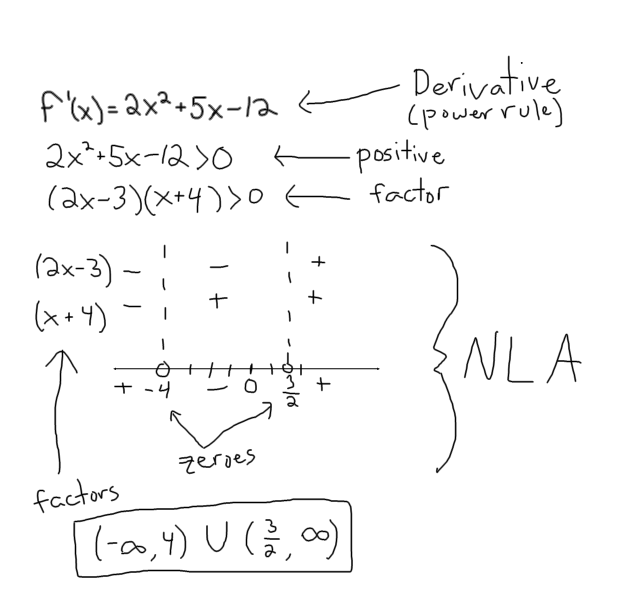 f'(x) = 2x²+5x-12 ← Derivative
(power rule)
2x²+5x-12>0 ← positive
(2x-3)(x+4)>0 ← factor
(2x-3) - - +
(x+4) - + +
NLA
+ -4 - 0 3/2 +
zeroes
factors
(-∞,4) ∪ (3/2, ∞)